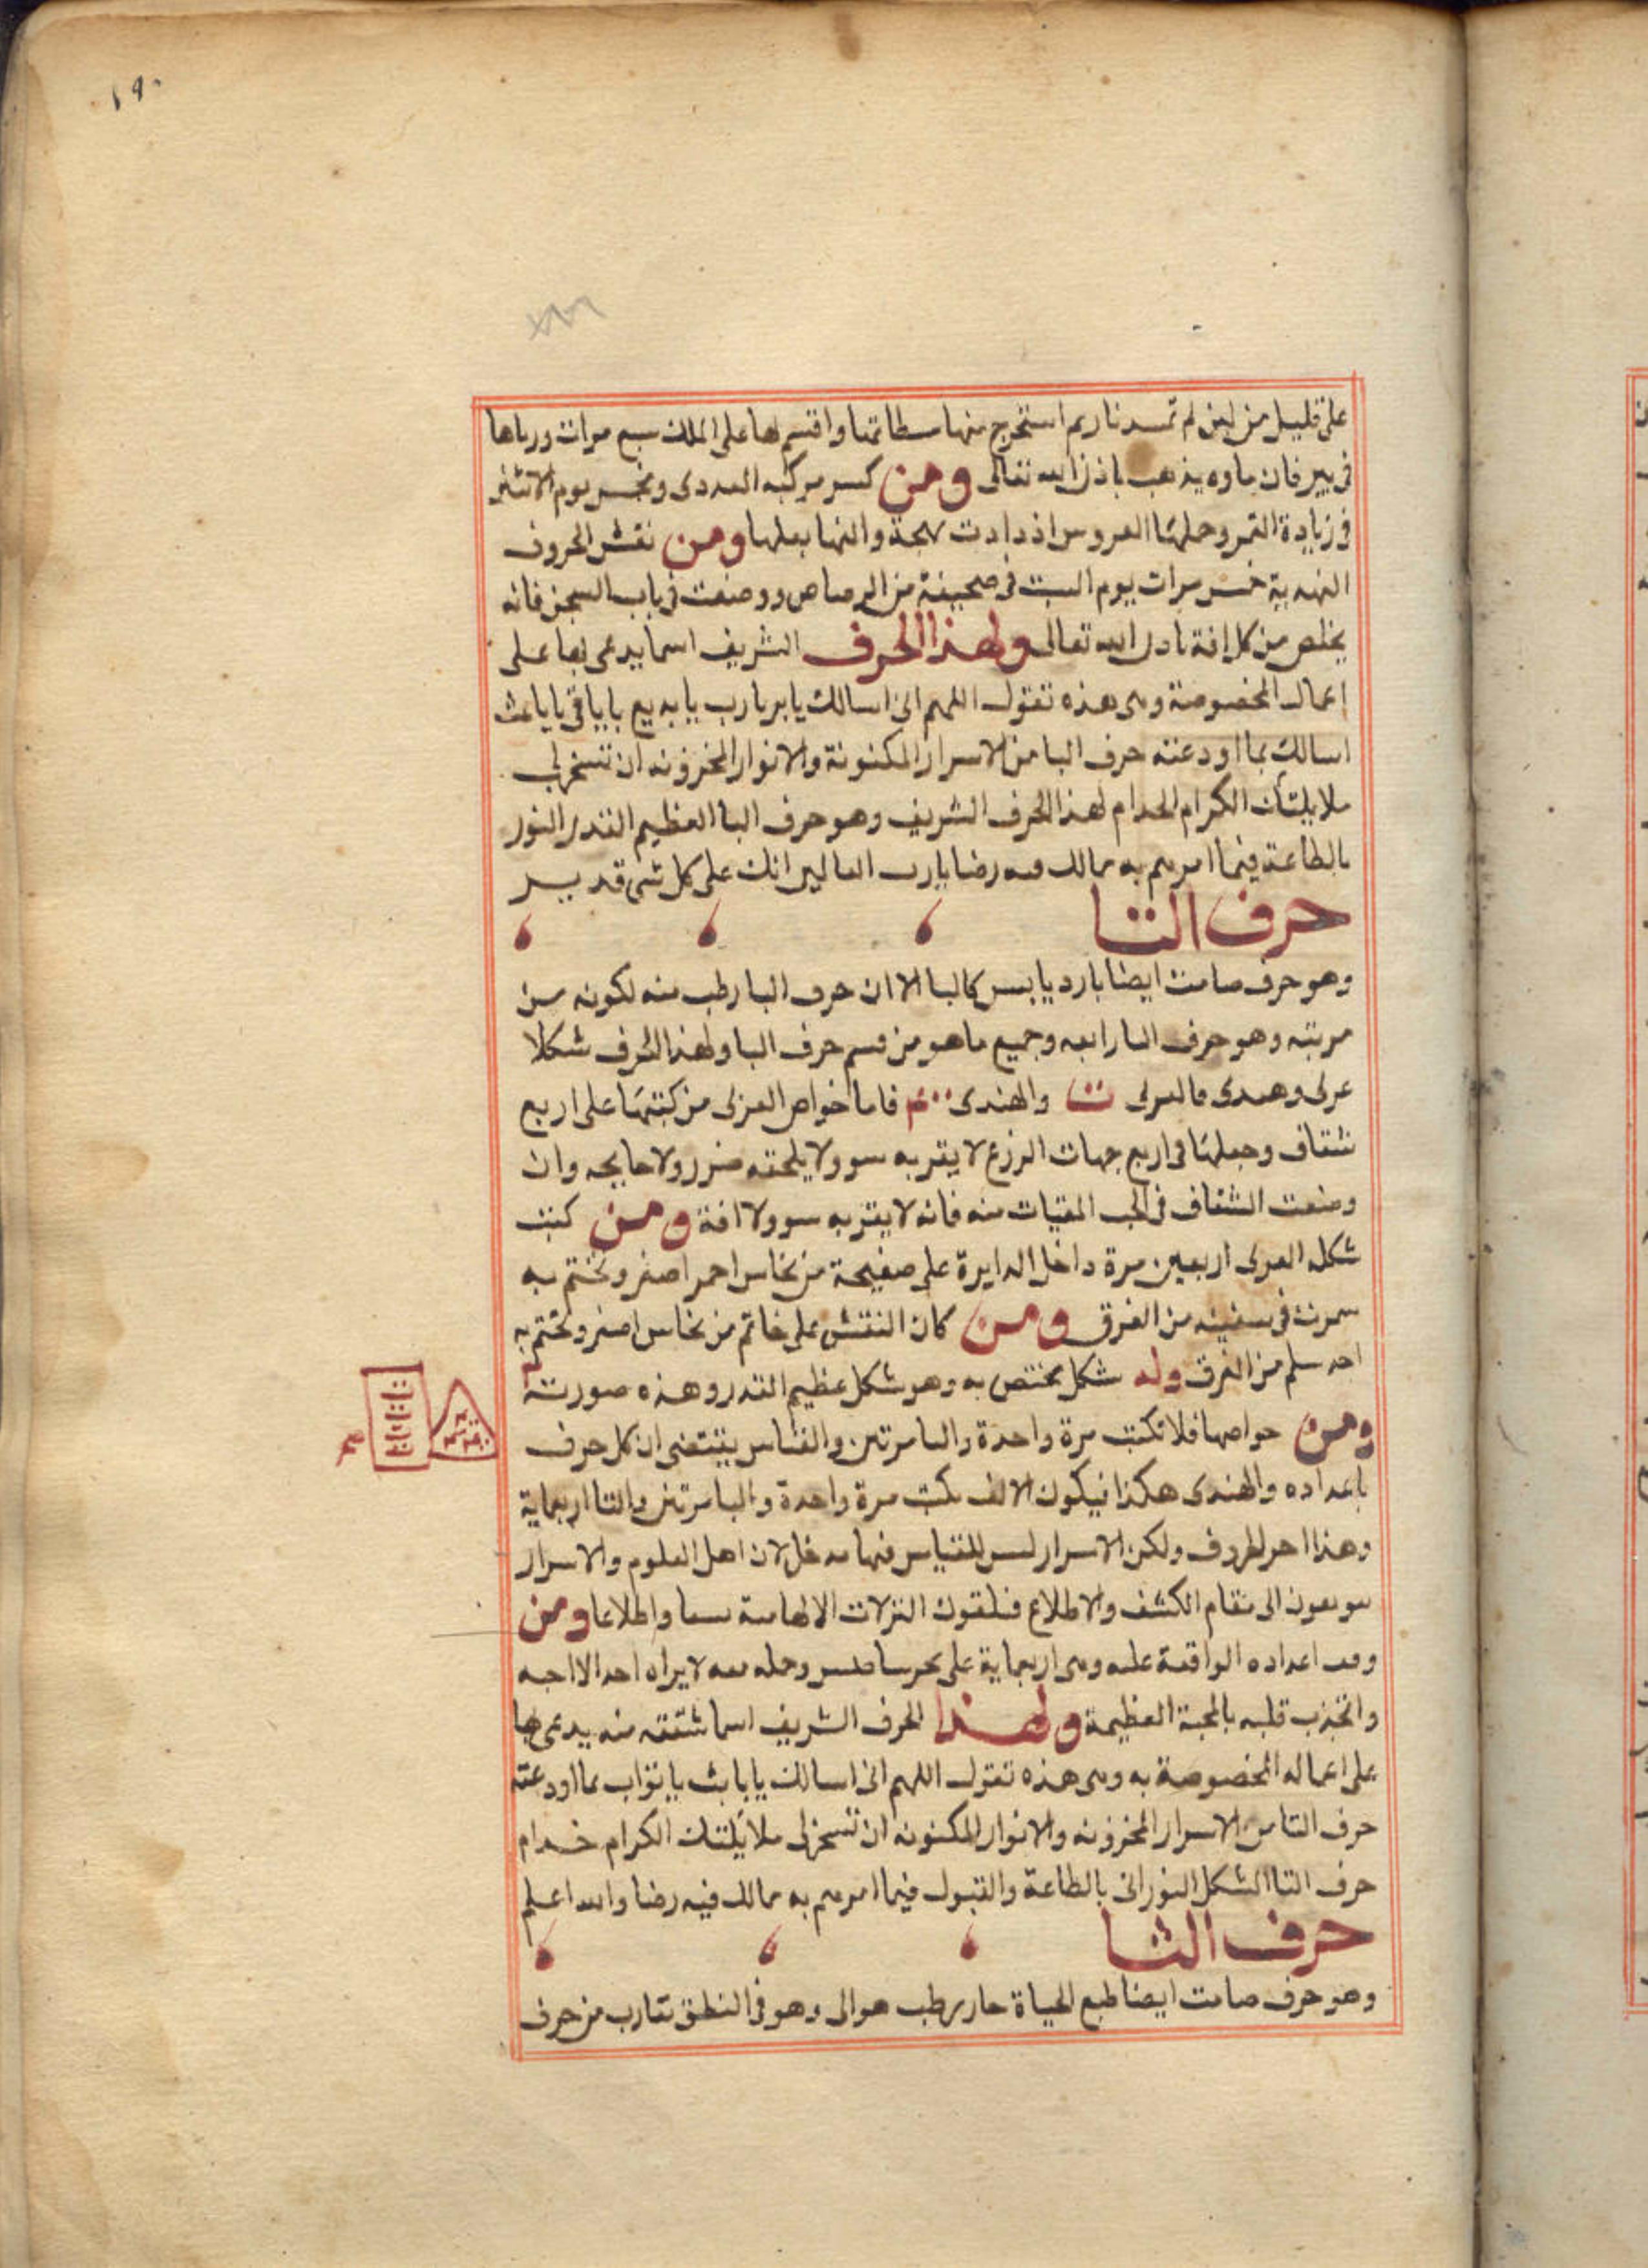 ١٩٠
على قليل من لبن لم تمسه نار ثم استخرج منها بسطاتها واقسم بها على الملك سبع مرات ورماها
في بير فان ماوه يذهب باذن الله تعالى ومن كسر مركبه العددى وبخس يوم الاثنين
في زيادة القمر وحملتها العروس ازدادت بهجة والفها بعلها ومن نقش الحروف
الهندية خمس مرات يوم السبت في صحيفة من الرصاص ووضعت في باب السجن فانه
يخلص من كل افة باذن الله تعالى ولهذا الحرف الشريف اسما يدعى بها على
اعماله المخصوصة وهى هذه تقول اللهم انى اسالك يا بر يا رب يا بديع يا باقى يا باعث
اسالك بما اودعته حرف البا من الاسرار المكنونة والانوار المخزونه ان تسخر لى
ملايكتك الكرام الخدام لهذا الحرف الشريف وهو حرف البا العظيم القدر النور
بالطاعة فيما امرهم به مما لك فيه رضا يا رب العالمين انك على كل شى قدير
حرف التا
وهو حرف صامت ايضا بارد يابس كالبا الا ان حرف البا رطب منه لكونه من
مرتبه وهو حرف التا رابعه وجميع ما هو من قسم حرف البا ولهذا الحرف شكلا
عربى وهندى فالعربى ت والهندى ٤٠٠ فاما خواص العربى من كتبها على اربع
شقاف وجعلها فى اربع جهات الزرع لا يقربه سو ولا يلحقه ضرر ولا جايحه وان
وضعت الشقاف فى الحب المقتات منه فانه لا يقربه سو ولا افة ومن كتب
شكله العربى اربعين مرة داخل الدايرة على صفيحة من نحاس احمر اصفر وتختم به
سمرت فى سفينه من الغرق ومن كان النقش على خاتم من نحاس اصفر وتختم به
احد سلم من الغرق وله شكل مختص به وهو شكل عظيم القدر وهذه صورته
ومن خواصها فلا تكتب مرة واحدة والبا مرتين والقياس يقتضى ان كل حرف
باعداده والهندى هكذا فيكون الالف يكتب مرة واحدة والبا مرتين والتا اربعماية
وهذا اخر الحروف ولكن الاسرار ليس للقياس فيها مدخل لان اهل العلوم والاسرار
الى مقام الكشف والاطلاع فيلقون التنزلات الالهامية سمعا واطلاعا ومن
وفق اعداده الواقعة عليه وهى اربعماية على وحمله معه لا يراه احد الا احبه
وانجذب قلبه بالمحبة العظيمة ولهذا الحرف الشريف اسما مشتقه منه يدعى بها
على اعماله المخصوصة به وهى هذه تقول اللهم انى اسالك يا يا تواب بما اودعته
حرف التا من الاسرار المخزونه والانوار المكنونه ان تسخر لى ملايكتك الكرام خدام
حرف التا الشكل النورانى بالطاعة والقبول فيما امرهم به مما لك فيه رضا والله اعلم
حرف الثا
وهو حرف صامت ايضا طبع الحياة حار رطب هوائى وهو فى النطق تقارب من حرف